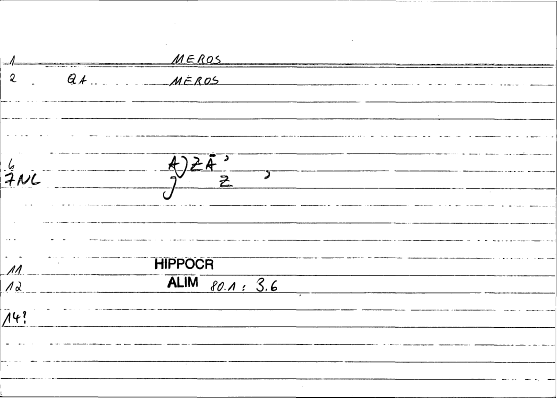 1 MEROS
2 QA MEROS
6 A)ZĀ'
7NL J Z '
11 HIPPOCR
12 ALIM 80.1 : 3.6
14?